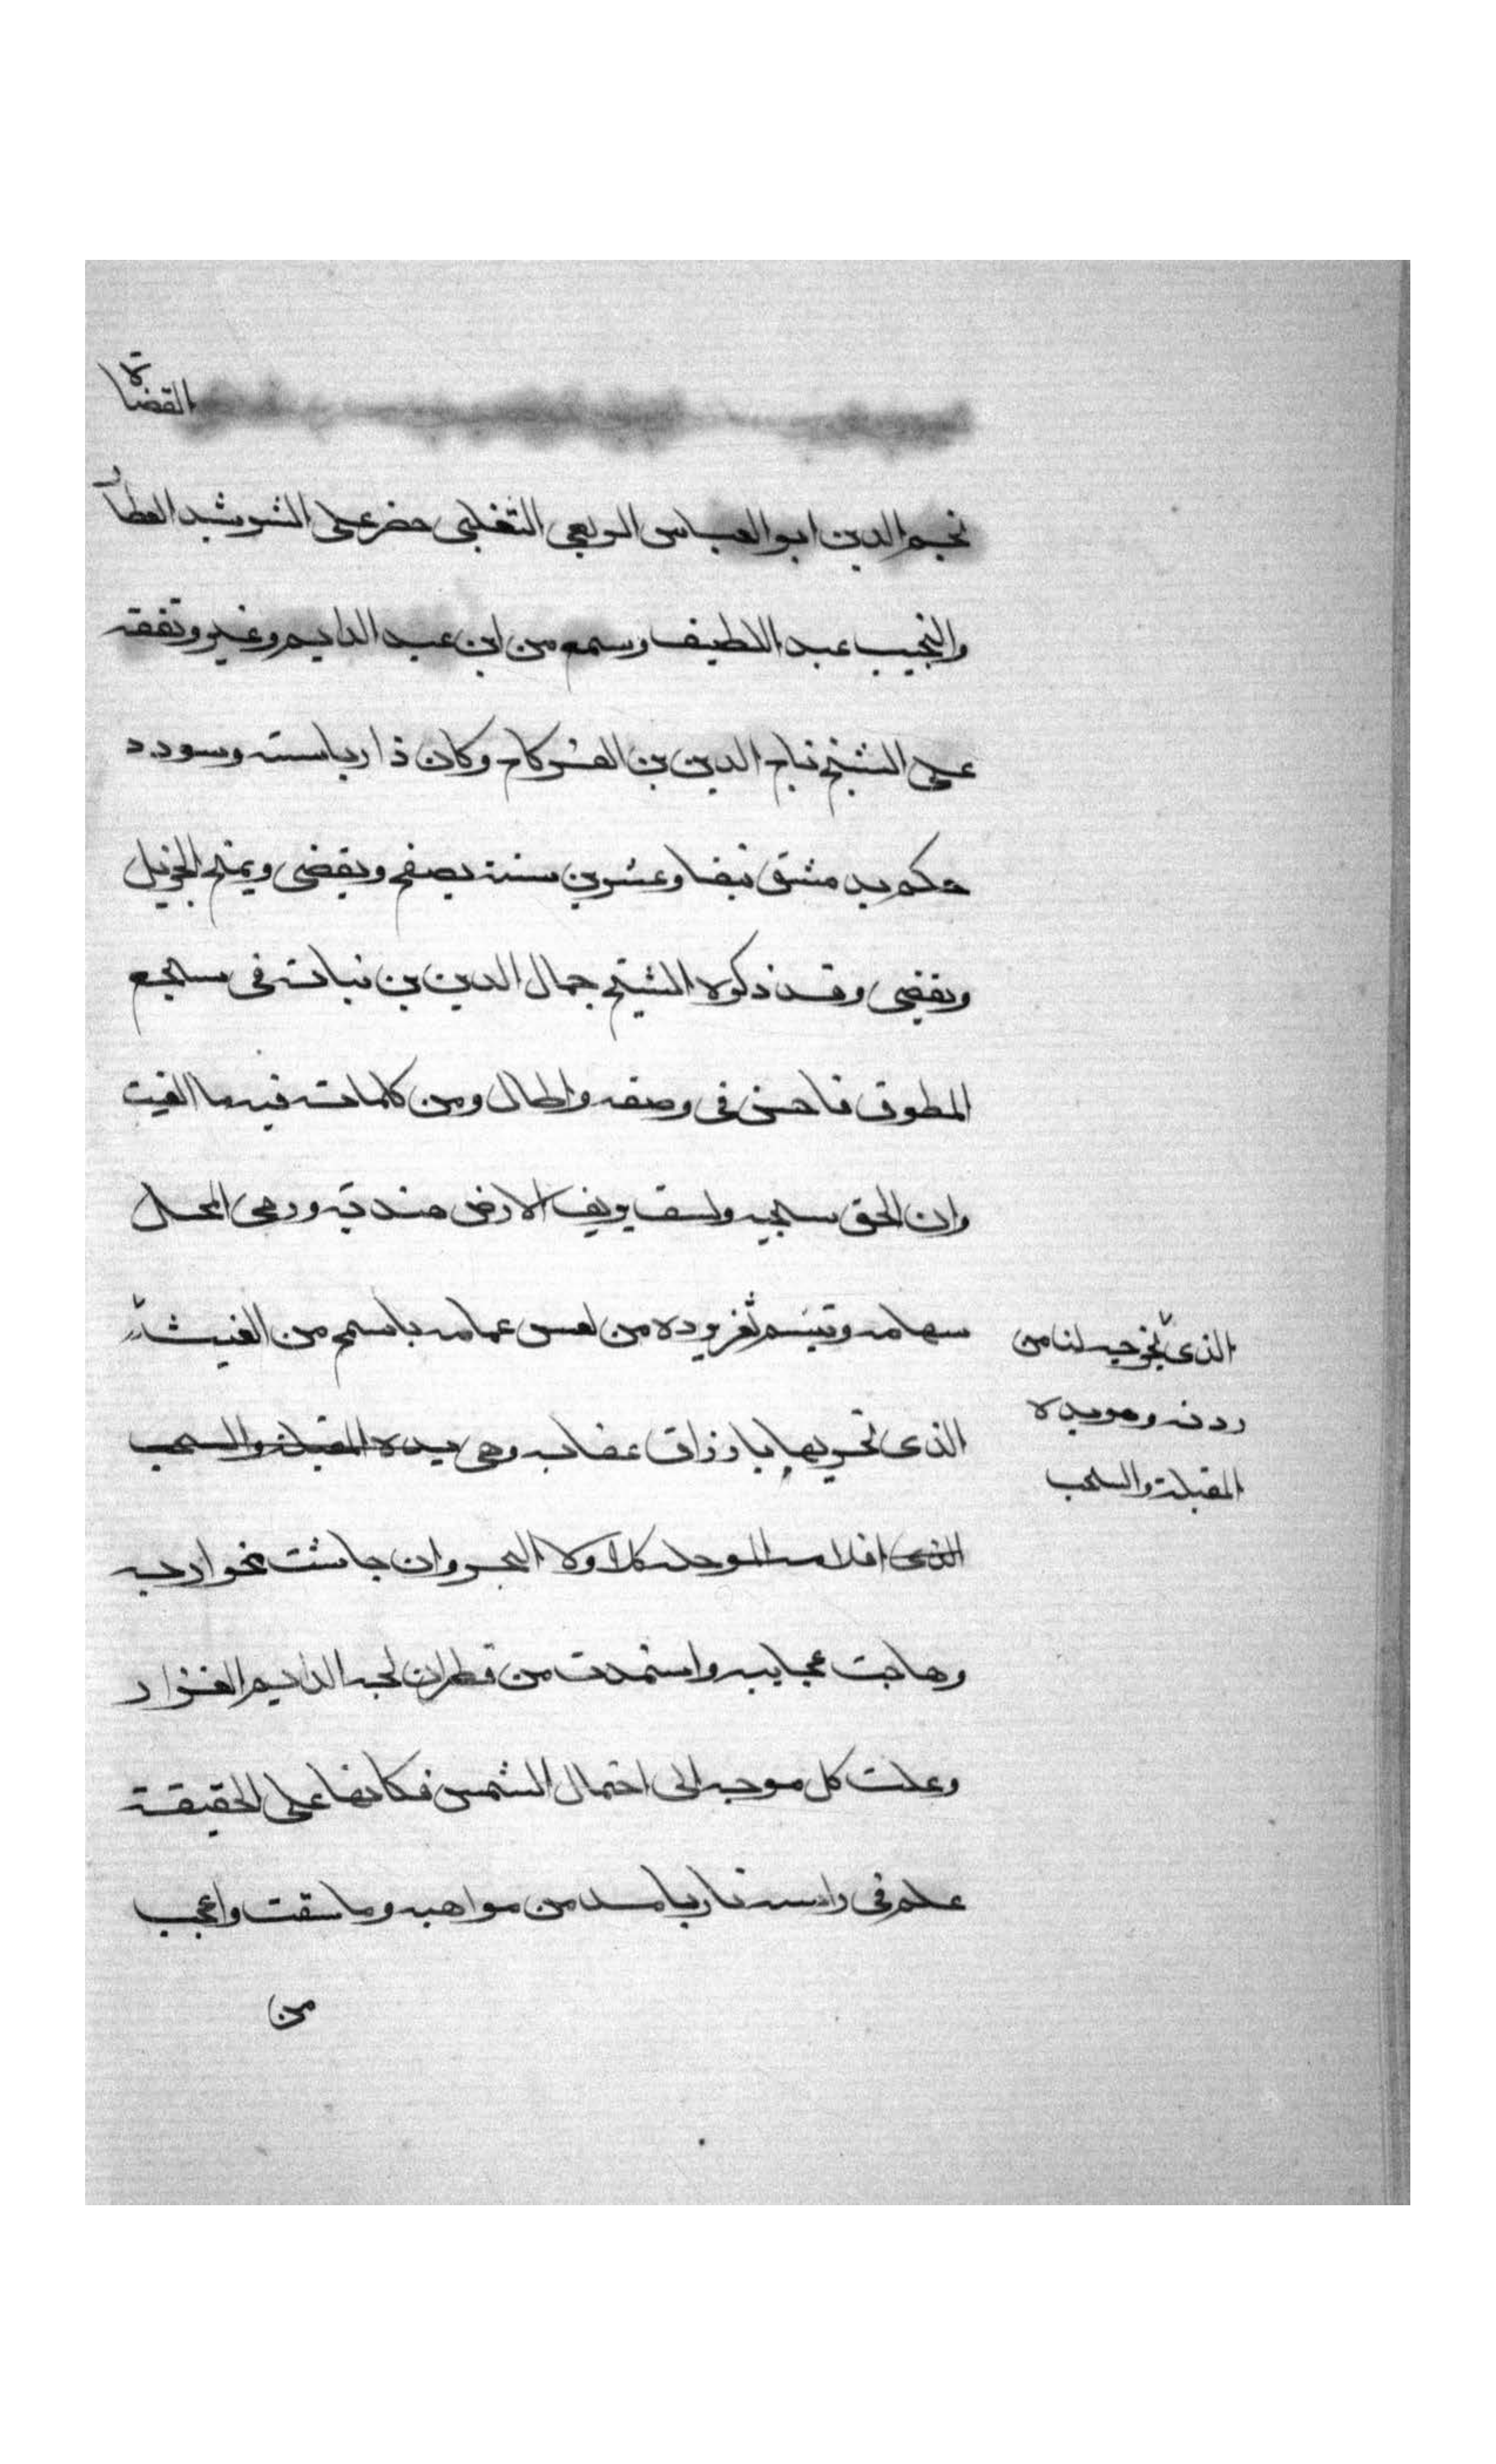 القضاة
نجم الدين ابو العباس الربعى التغلبى حضر على الرشيد العطار
والنجيب عبد اللطيف وسمع من ابن عبد الدايم وغيره وتفقه
على الشيخ تاج الدين بن الفركاح وكان ذا رياسته وسودد
حكم بدمشق نيفا وعشرين سنة يصفح ويقضى ويمنح الجزيل
ويفضى وقد ذكره الشيخ جمال الدين بن نباته فى سجع
المطوق فاحسن فى وصفه واطال ومن كلماته فيه ما الغيث
وان الحق سحبه ولسقف يويف الارض هيدبه ورمى المحل
سهامه وتبسم ثغر بوده من لعس غمامه باسمح من الغيث
الذى تجريها بارزاق عفاته وهى يده المقبلة والسحب
الذى اقلامه الموجلة كلا ولا البحر وان جاشت غواربه
وهاجت عجايبه واستمدت من قطرات لجه الدايم الغزار
وعلت كل موجه الى احتمال الشمس فكانها على الحقيقة
علم فى راسه نار بامد من مواهبه وما سقت واعجب
من
الذى يخرجه لنا من
ردنه وهو يده
المقبلة والسحب